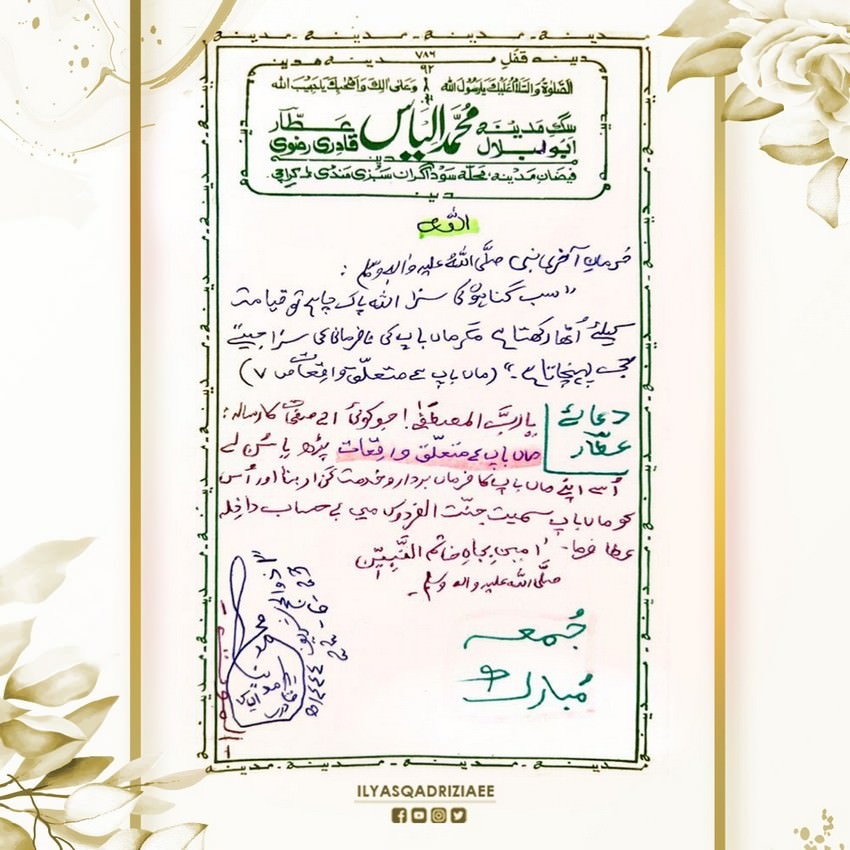 مدینہ قفلِ مدینہ مدینہ
۷۸۶
۹۲
الصَّلٰوۃُ وَالسَّلَامُ عَلَیْكَ یَارَسُوْلَ اللہ وَعَلٰی اٰلِكَ وَاَصْحٰبِكَ یَاحَبِیْبَ اللہ
سگِ مدینہ ابو بلال محمّد الیاس عطّار قادری رضوی
فیضانِ مدینہ، محلّہ سوداگران سبزی منڈی کراچی۔
فرمانِ آخری نبی صلَّی اللہ علیہ واٰلہٖ وسلّم :
"سب گناہوں کی سزا اللہ پاک چاہے تو قیامت
کیلئے اُٹھا رکھتا ہے مگر ماں باپ کی نافرمانی کی سزا جیتے
جی پہنچاتا ہے۔" (ماں باپ سے متعلّق واقعات ص ۷)
دعائے عطّار
یاربَّ المصطفٰی! جو کوئی 17 صفحات کا رسالہ:
ماں باپ کے متعلّق واقعات پڑھ یا سُن لے
اُسے اپنے ماں باپ کا فرماں بردار و خدمت گزار بنا اور اُس
کو ماں باپ سمیت جنّت الفردوس میں بے حساب داخلہ
عطا فرما۔ اٰمین بِجاہِ خاتمِ النَّبِیّٖن
صلَّی اللہ علیہ واٰلہٖ وسلّم۔
جُمعہ
مُبارک
۱۴۴۴ھ
ILYASQADRIZIAEE